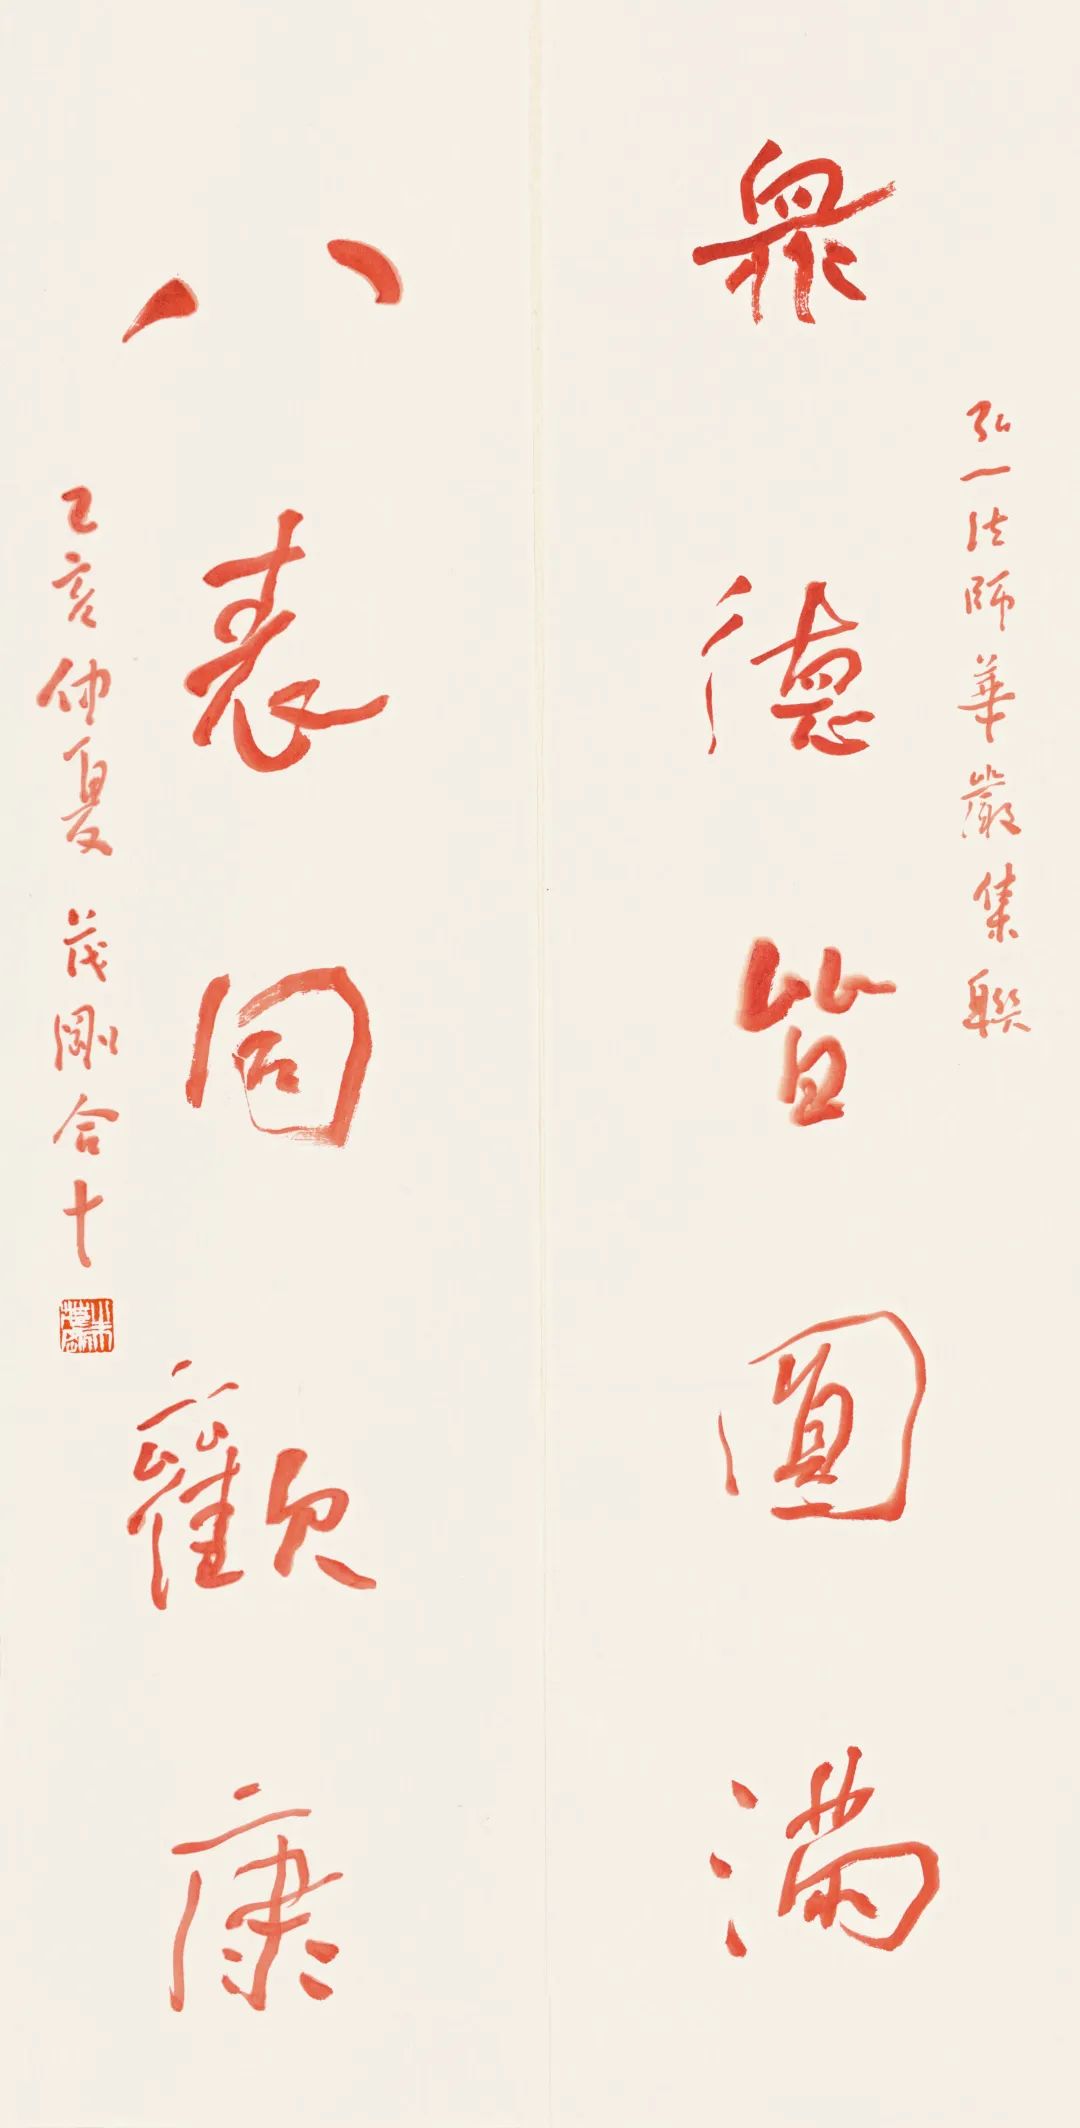 弘一法師華嚴集聯
衆德皆圓滿
八表同歡康
己亥仲夏 茂剛合十